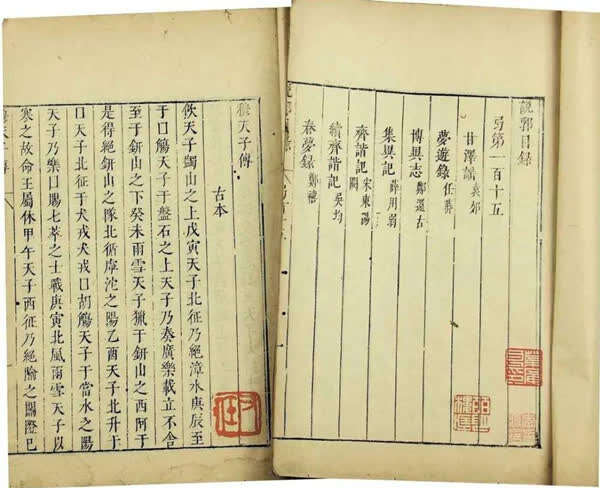 說郛目錄
弓第一百十五
甘澤謠 袁郊
夢遊錄 任蕃
博異志 鄭還古
集異記 薛用弱
齊諧記 宋東陽
續齊諧記 吳均
春夢錄 鄭禧
穆天子傳
古本
飲天子蠲山之上戊寅天子北征乃絕漳水庚辰至
于□觴天子于盤石之上天子乃奏廣樂載立不舍
至于鈃山之下癸未雨雪天子獵于鈃山之西阿于
是得絕鈃山之隊北循虖沱之陽乙酉天子北升于
□天子北征于犬戎犬戎□胡觴天子于當水之陽
天子乃樂□賜七萃之士戰庚寅北風雨雪天子以
寒之故命王屬休甲午天子西征乃絕隃之關隥已